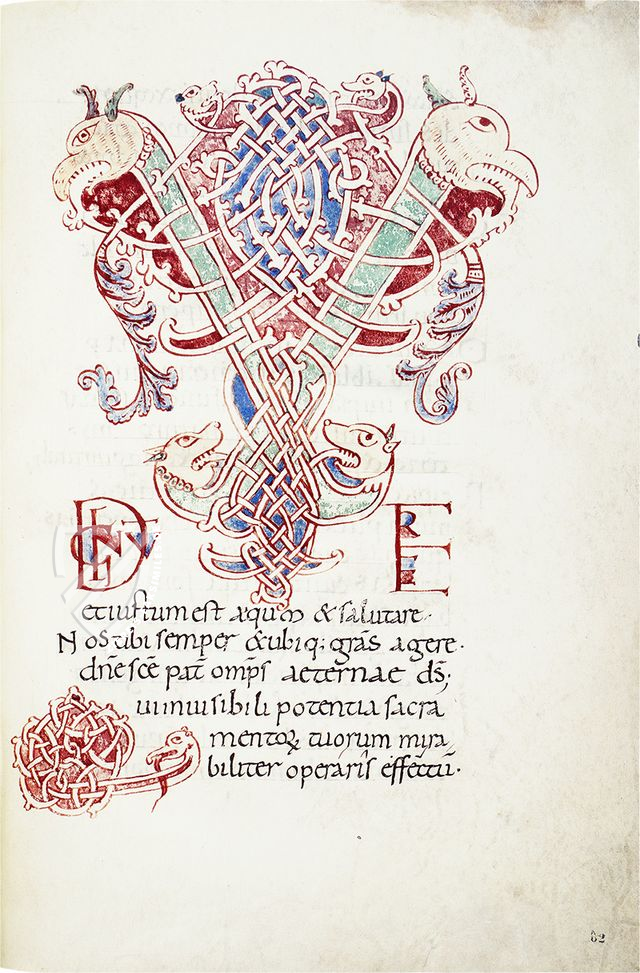 V
DIGNV ERE
etiustum est aequom & salutare·
Nos tibi semper & ubiq; grās agere·
dn̄e sc̄e pat̄ omp̄s aeternae ds̄;
Q uiinuisibili potentia sacra
mentoꝝ tuorum mira
biliter operaris effectū·